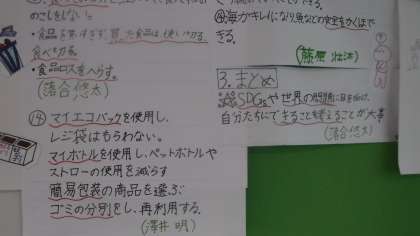 のこしをしない。
・食品を買いすぎず、買った食品は使い切る、
食べ切る。
・食品ロスをへらす。
(落合 悠太)
⑭ マイエコバックを使用し、
レジ袋はもらわない。
マイボトルを使用し、ペットボトルや
ストローの使用を減らす
簡易包装の商品を選ぶ
ゴミの分別をし、再利用する。
(澤井 明)
海がキレイになり魚などの安全をかくほで
きる。
(藤原 壮汰)
3.まとめ
SDGsや世界の問題に目を向け、
自分たちにできること考えることが大事
(落合悠太)